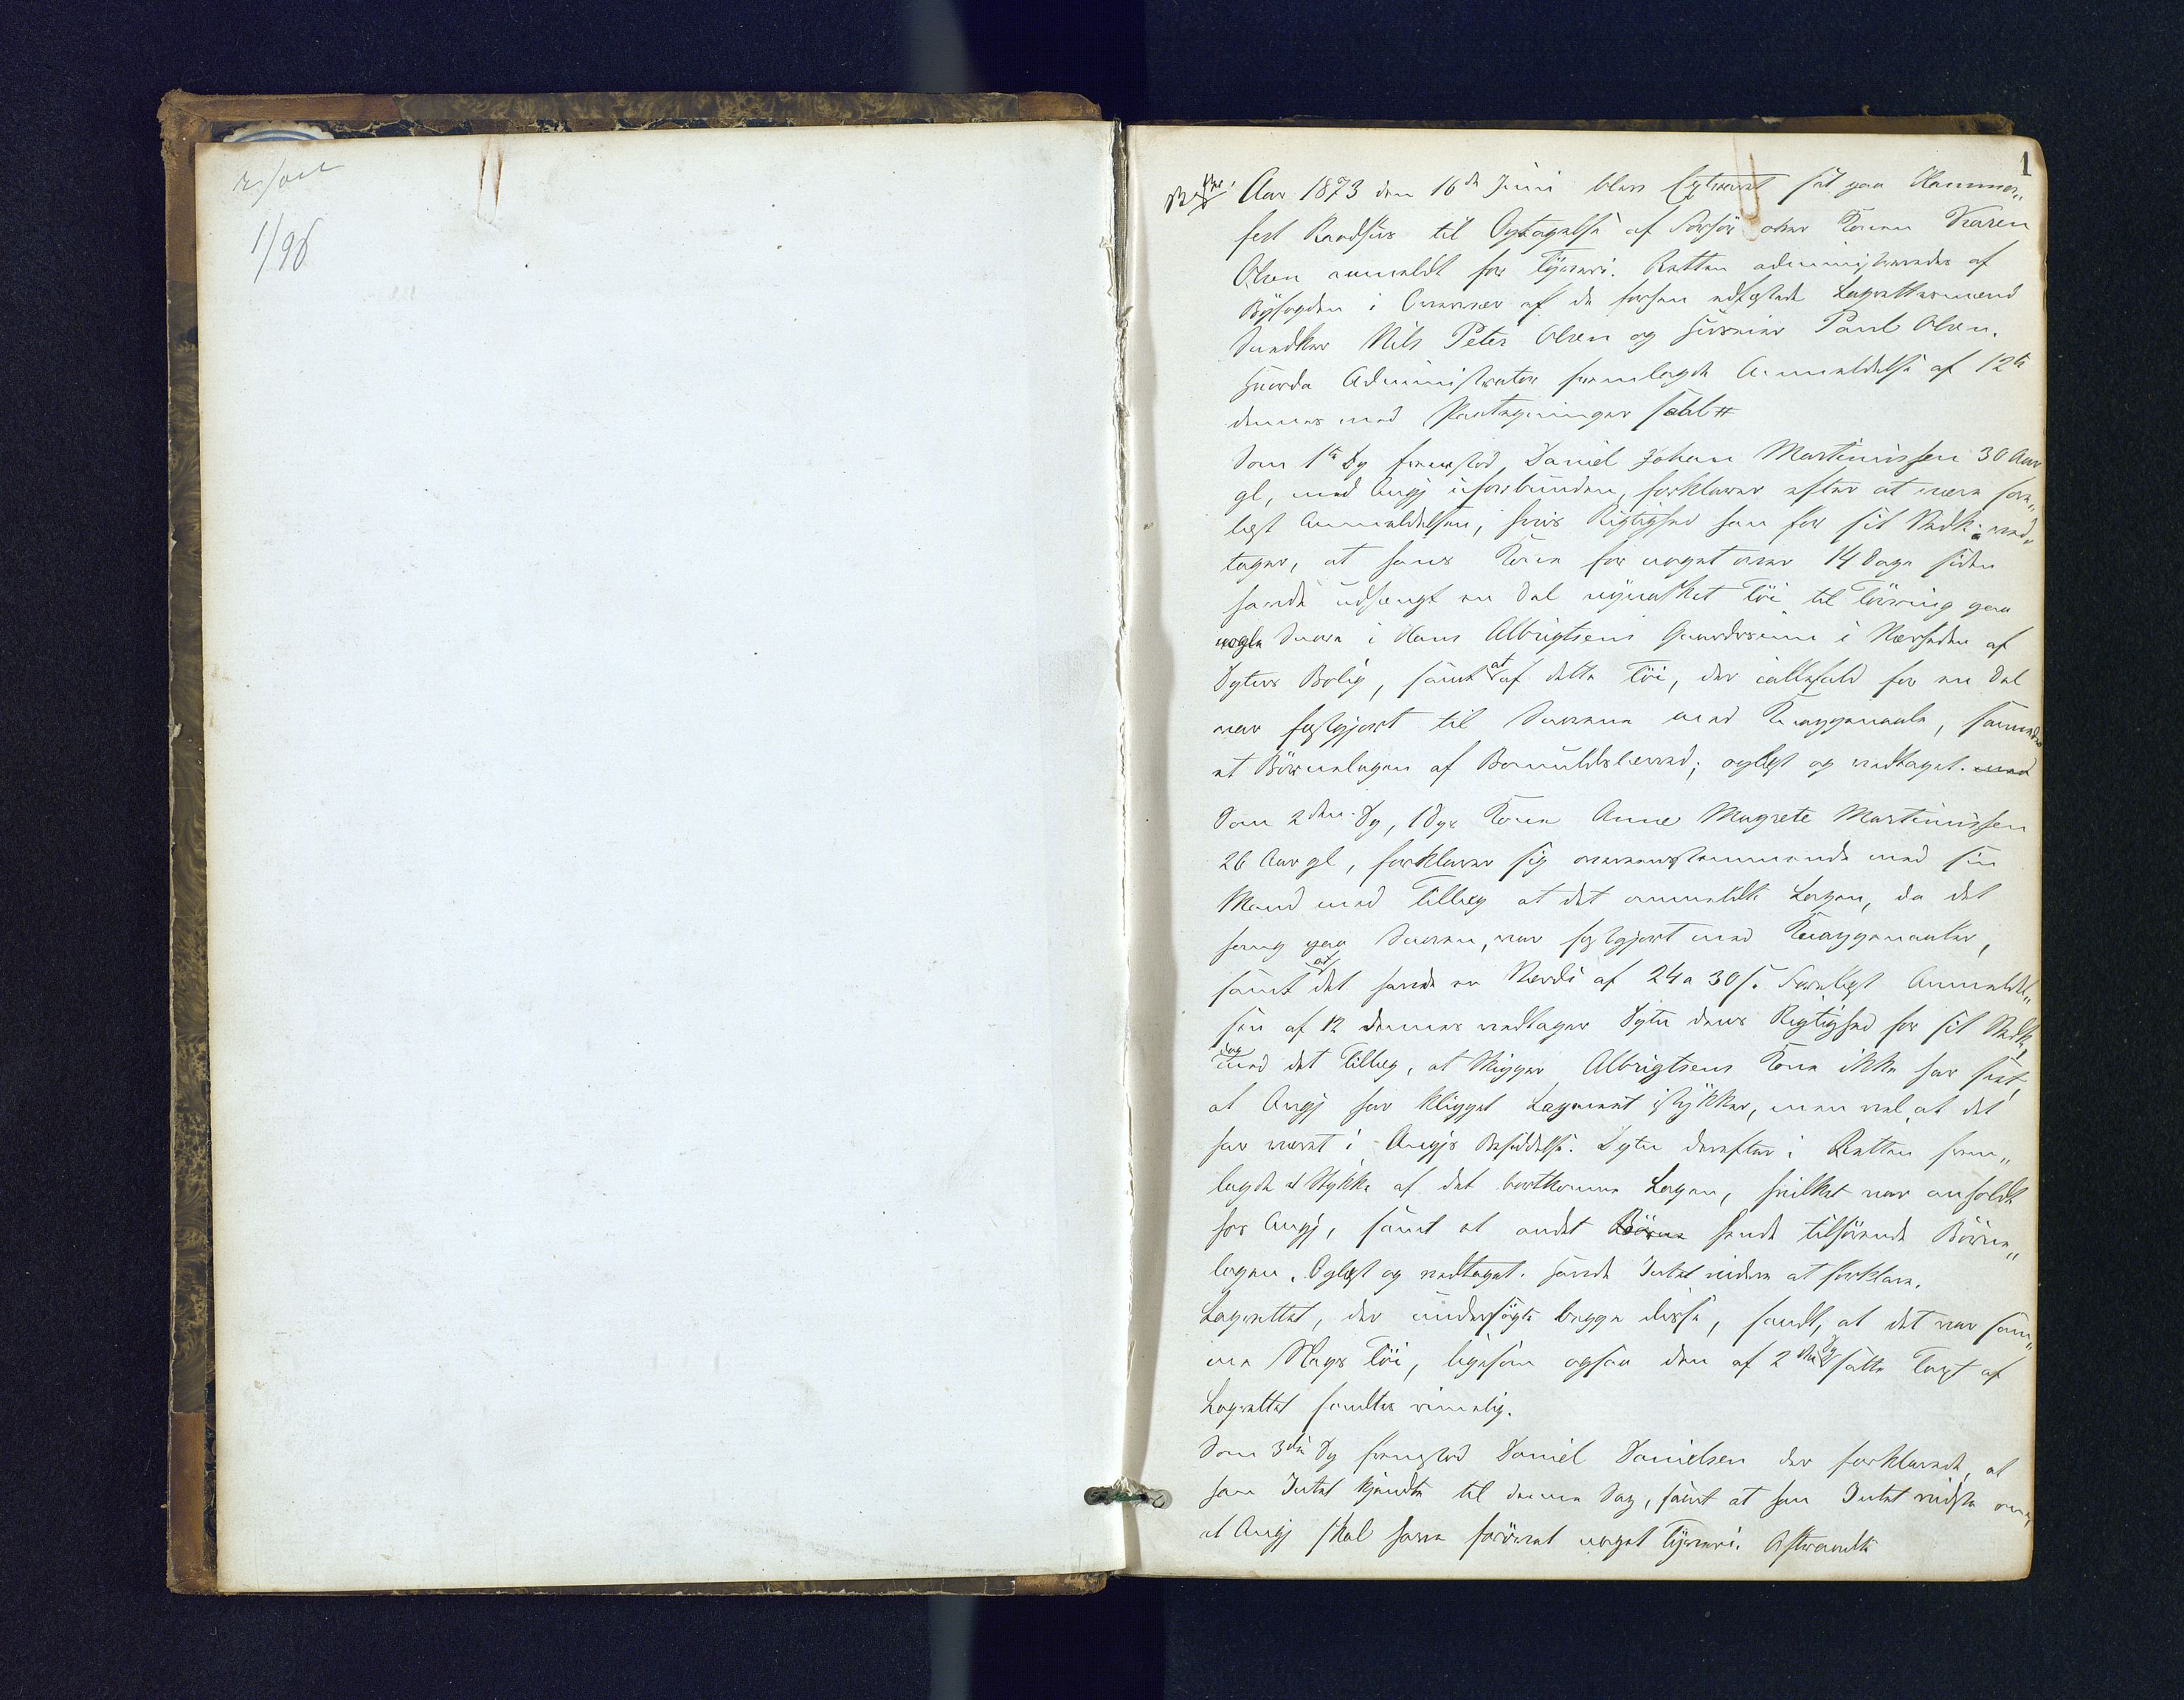 1/98
1
Aar 1873 den 16de Juni blev Extraret sat paa Hammer„
fest Raadhus til Optagelse af Forhör over Konen Karen
Olsen anmeldt for Tyveri. Retten administreredes af
Byfogden i Overvær af de forhen edfæstede Lagrettesmænd
Snedker Nils Peter Olsen og Huseier Paul Olsen.
Hvorda Administrator fremlagde Anmeldelse af 12te
dennes med Paategninger saal#
Som 1ste Vg fremstod Daniel Johan Martinussen 30 Aar
gl, med Angj uforbunden, forklarer efter at være fore„
læst Anmeldelsen, hvis Rigtighed han for sit Vedk: ved„
tager, at hans Kone for noget over 14 Dage siden
havde udhængt en Del nyvasket Töi til Törring paa
nogle Snore i Hans Albrigtsens Gaardsrum i Nærheden af
Vgtns Bolig, samt at af dette Töi, der iallefald for en Del
var fastgjort til Snorene med Knappenaale, savnedes
et Börnelagen af Bomuldslerred; oplæst og vedtaget. med
Som 2den Vg, 1 Vgs Kone Anne Magrete Martinussen
26 Aar gl, forklarer sig overensstemmende med sin
Mand med Tillæg at det anmeldte Lagen, da det
hang paa Snoren, var fastgjort med Knappenaaler,
samt at det havde en Værdi af 24 a 30 s. Forelæst Anmeldel„
sen af 12 dennes vedtager Vgtn dens Rigtighed for sit Vedk,
dog med det Tillæg, at Skipper Albrigtsens Kone ikke har seet,
at Angj har klippet Lagenet istykker, men vel at det
har været i Angjs Besiddelse. Vgtn derefter i Retten frem„
lagde et Stykke af det bortkomne Lagen, hvilket var anholdt
hos Angj, samt et andet Börne hende tilhörende Börne„
lagen. Oplæst og vedtaget. Havde Intet videre at forklare.
Lagrettet, der undersögte begge disse, fandt, at det var sam„
me Slags Töi, ligesom ogsaa den af 2den Vg satte Taxt af
Lagrettet fandtes rimelig.
Som 3die Vg fremstod Daniel Danielsen der forklarede, at
han Intet kjendte til denne Sag, samt at han Intet vidste om,
at Angj skal have forövet noget Tyveri. Aftraadte